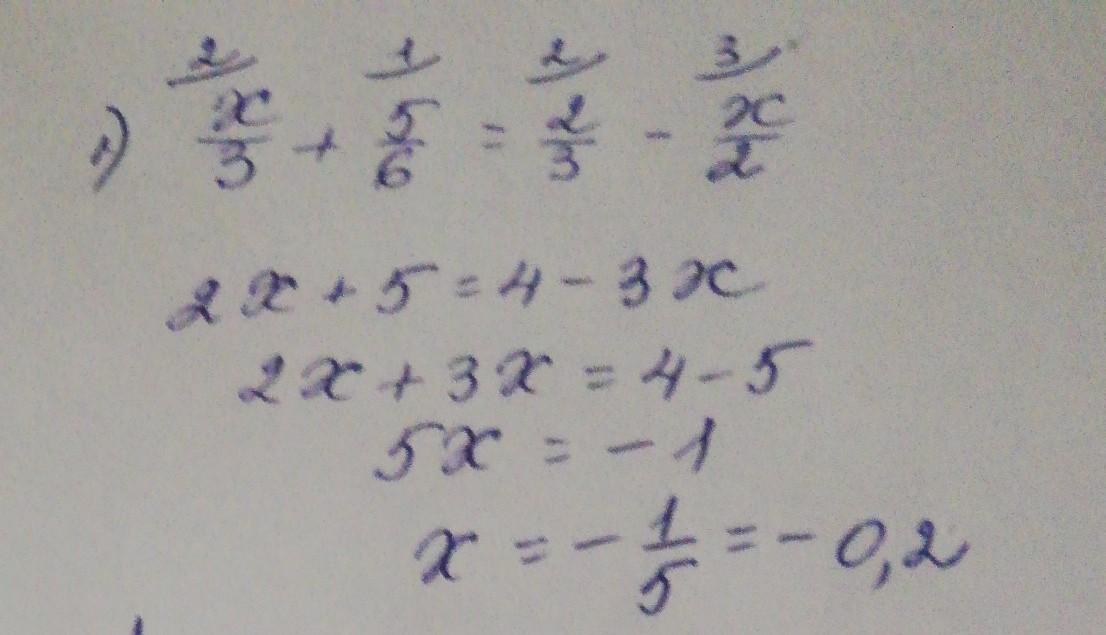 2/ 1/ 2/ 3/
1) x/3 + 5/6 = 2/3 - x/2
2x + 5 = 4 - 3x
2x + 3x = 4 - 5
5x = -1
x = - 1/5 = - 0,2